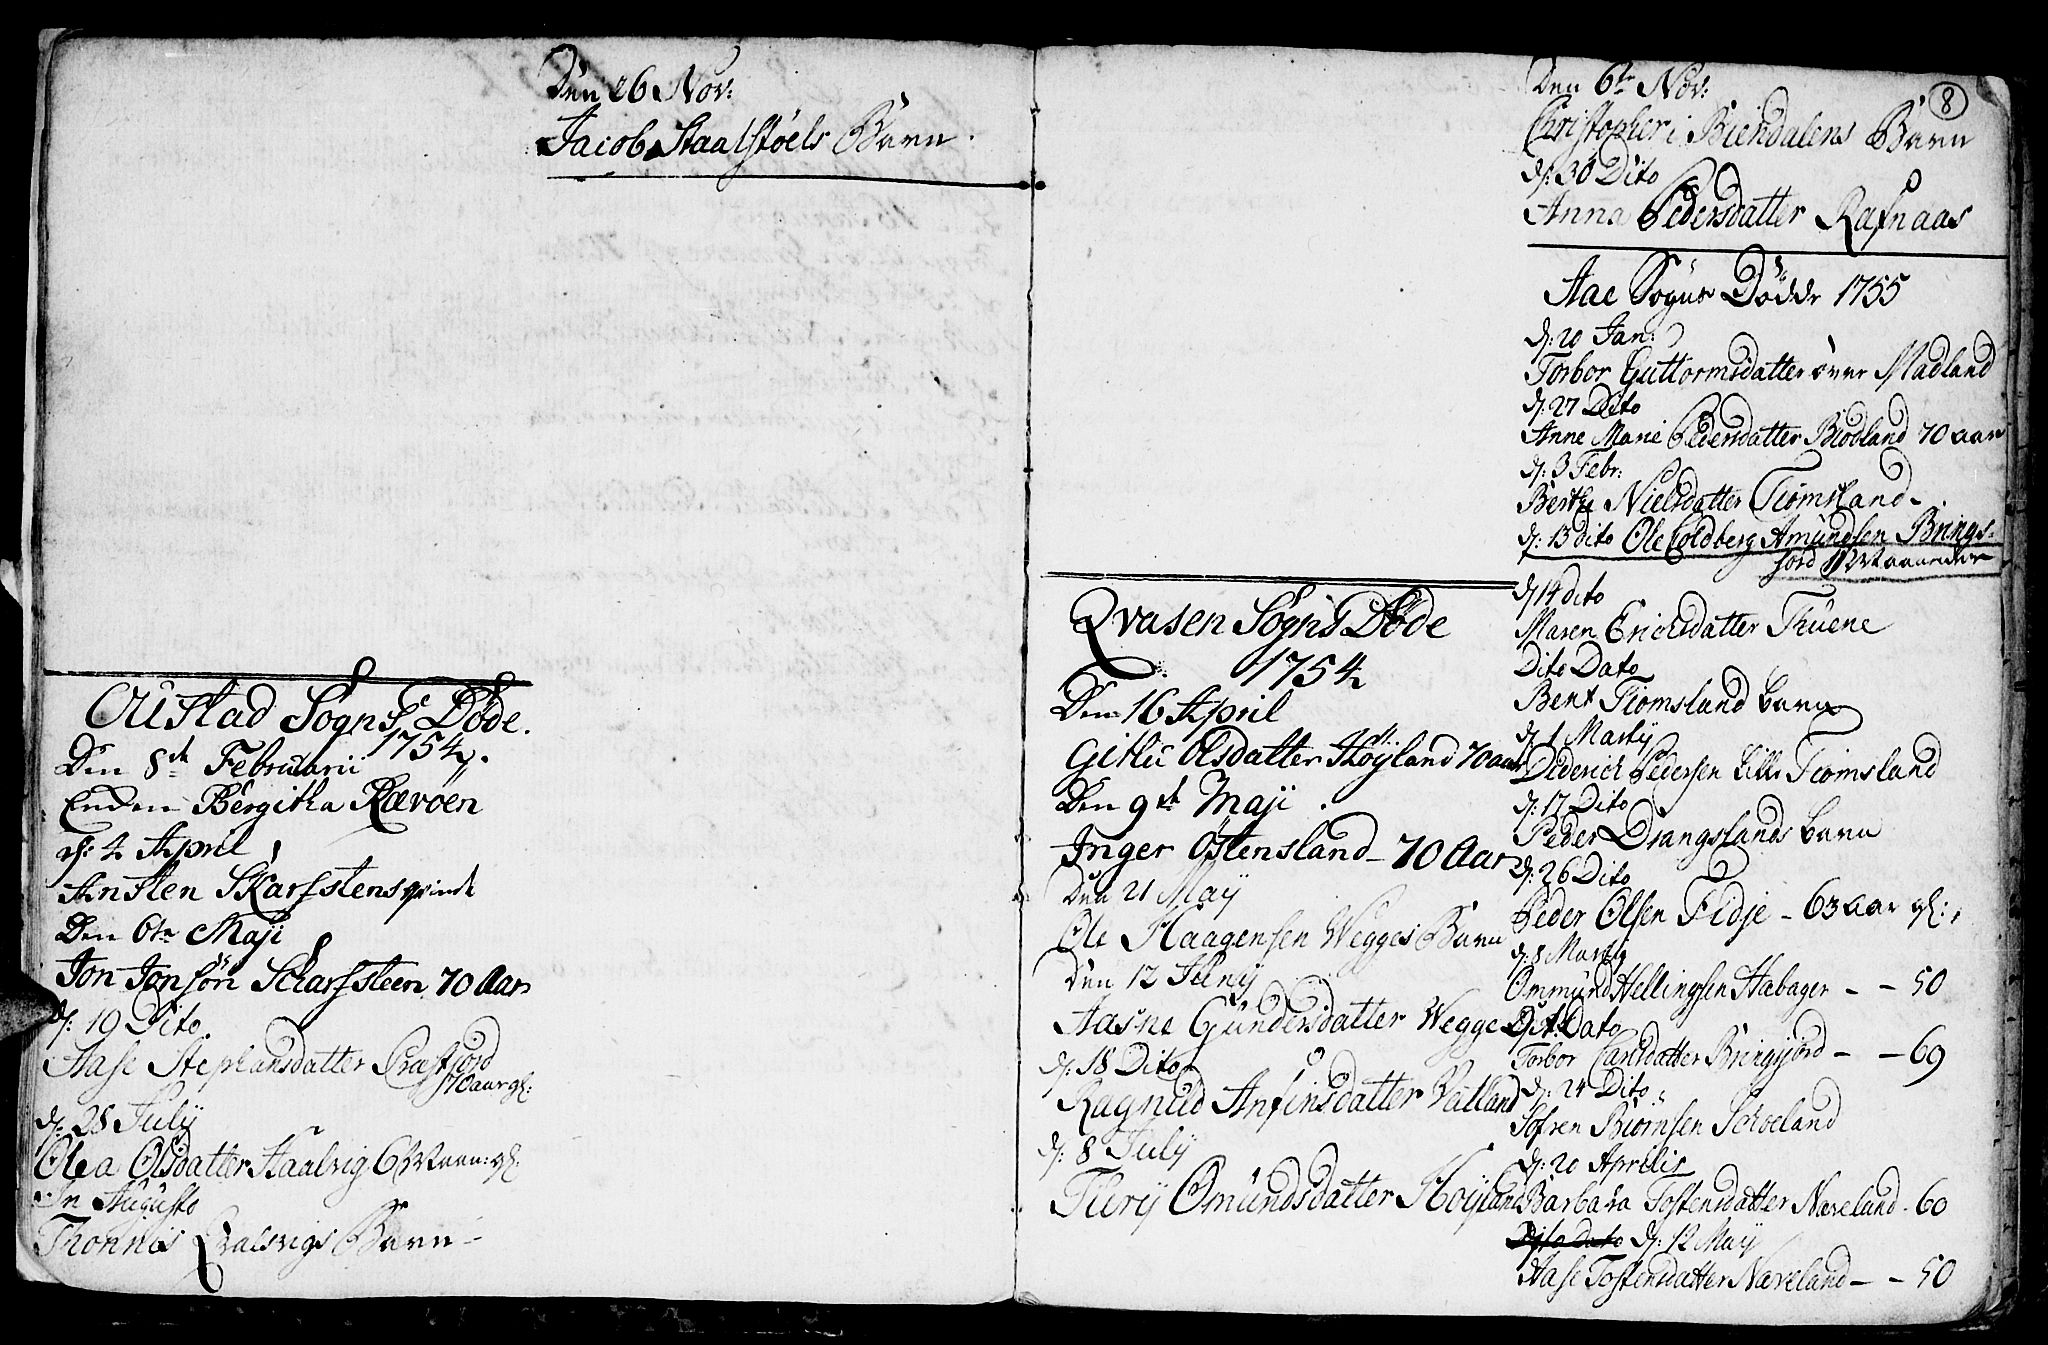 Den 26 Nov:
Jacob Staalstøels Barn.
Oustad Sogns Døde.
1754.
Den 8de Februarii
Enken Bergitha Rævøen
d: 4 April
Ansten Skarsstens qvinde
Den 6te Maji
Jon Jonsøn Scharssteen 70 Aar
d: 19 Dito.
Aase Stephansdatter
70 aar gl:
d: 28 July
Olea Olsdatter Haalvig 6 Maan: gl:
In Augusto
Thonnis Qvalsvigs Barn
8
Qvasen Sogns Døde
1754
Den 16 April
Gitlu Olsdatter Høyland 70 aar
Den 9de Maji
Inger Østensland - 70 Aar
Den 21 May
Ole Haagensen Wegges Barn
Den 12 Juny
Aasne Gundersdatter Wegge
d: 18 Dito
Ragnild Anfinsdatter Vatland
d: 8 July
Omundsdatter Høyland
Den 6te Nov:
Christopher i Biendalens Barn
d: 30 Dito
Anna Pedersdatter Rafnaas
Aae Sogns Dødde 1755
d: 20 Jan:
Torbor Guttormsdatter Madland
d: 27 Dito
Anne Marie Pedersdatter Biodland 70 aar
d: 3 Febr:
Berthe Nielsdatter Tiomsland
d: 13 dito Ole Coldberg Amundsen Brings-
fiord 11 Maaneder
d 14 dito
Maren Erichsdatter Thuene
Dito Dato
Bent Tiomsland barn
d 1 Marty
Diderich Pedersen Lille Tiomsland
d: 17 Dito
Peder Drangslands barn
d: 26 Dito
Peder Olsen Fidje - 63 aar gl:
d: 8 Marty
Ommund Hellingsen Habager - - 50
Dit: Dato
Torbor Carlsdatter Bringsjord - - 69
d: 24 Dito
Søfren Biørnsen Schoeland
d: 20 Aprilis
Barbara Tostensdatter Næveland - 60
Dito Dato d: 12 May
Aase Tostensdatter Næveland - - 50